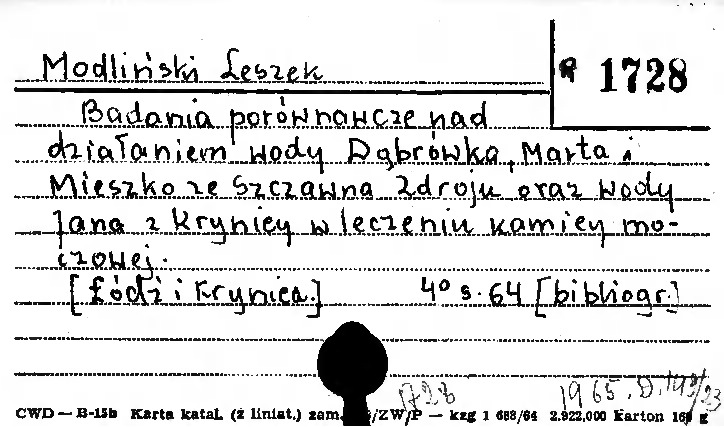 Modliński Leszek
R 1728
Badania porównawcze nad
działaniem wody Dąbrówka, Marta i
Mieszko ze Szczawna Zdroju oraz wody
Jana z Krynicy w leczeniu kamicy mo-
czowej.
[Łódź i Krynica.] 4° s. 64 [bibliogr.]
1728
1965. D. 149/23
CWD — B-15b Karta katal. (z liniat.) zam. /ZW/P — kzg 1 688/64 2.922,000 Karton 160 g